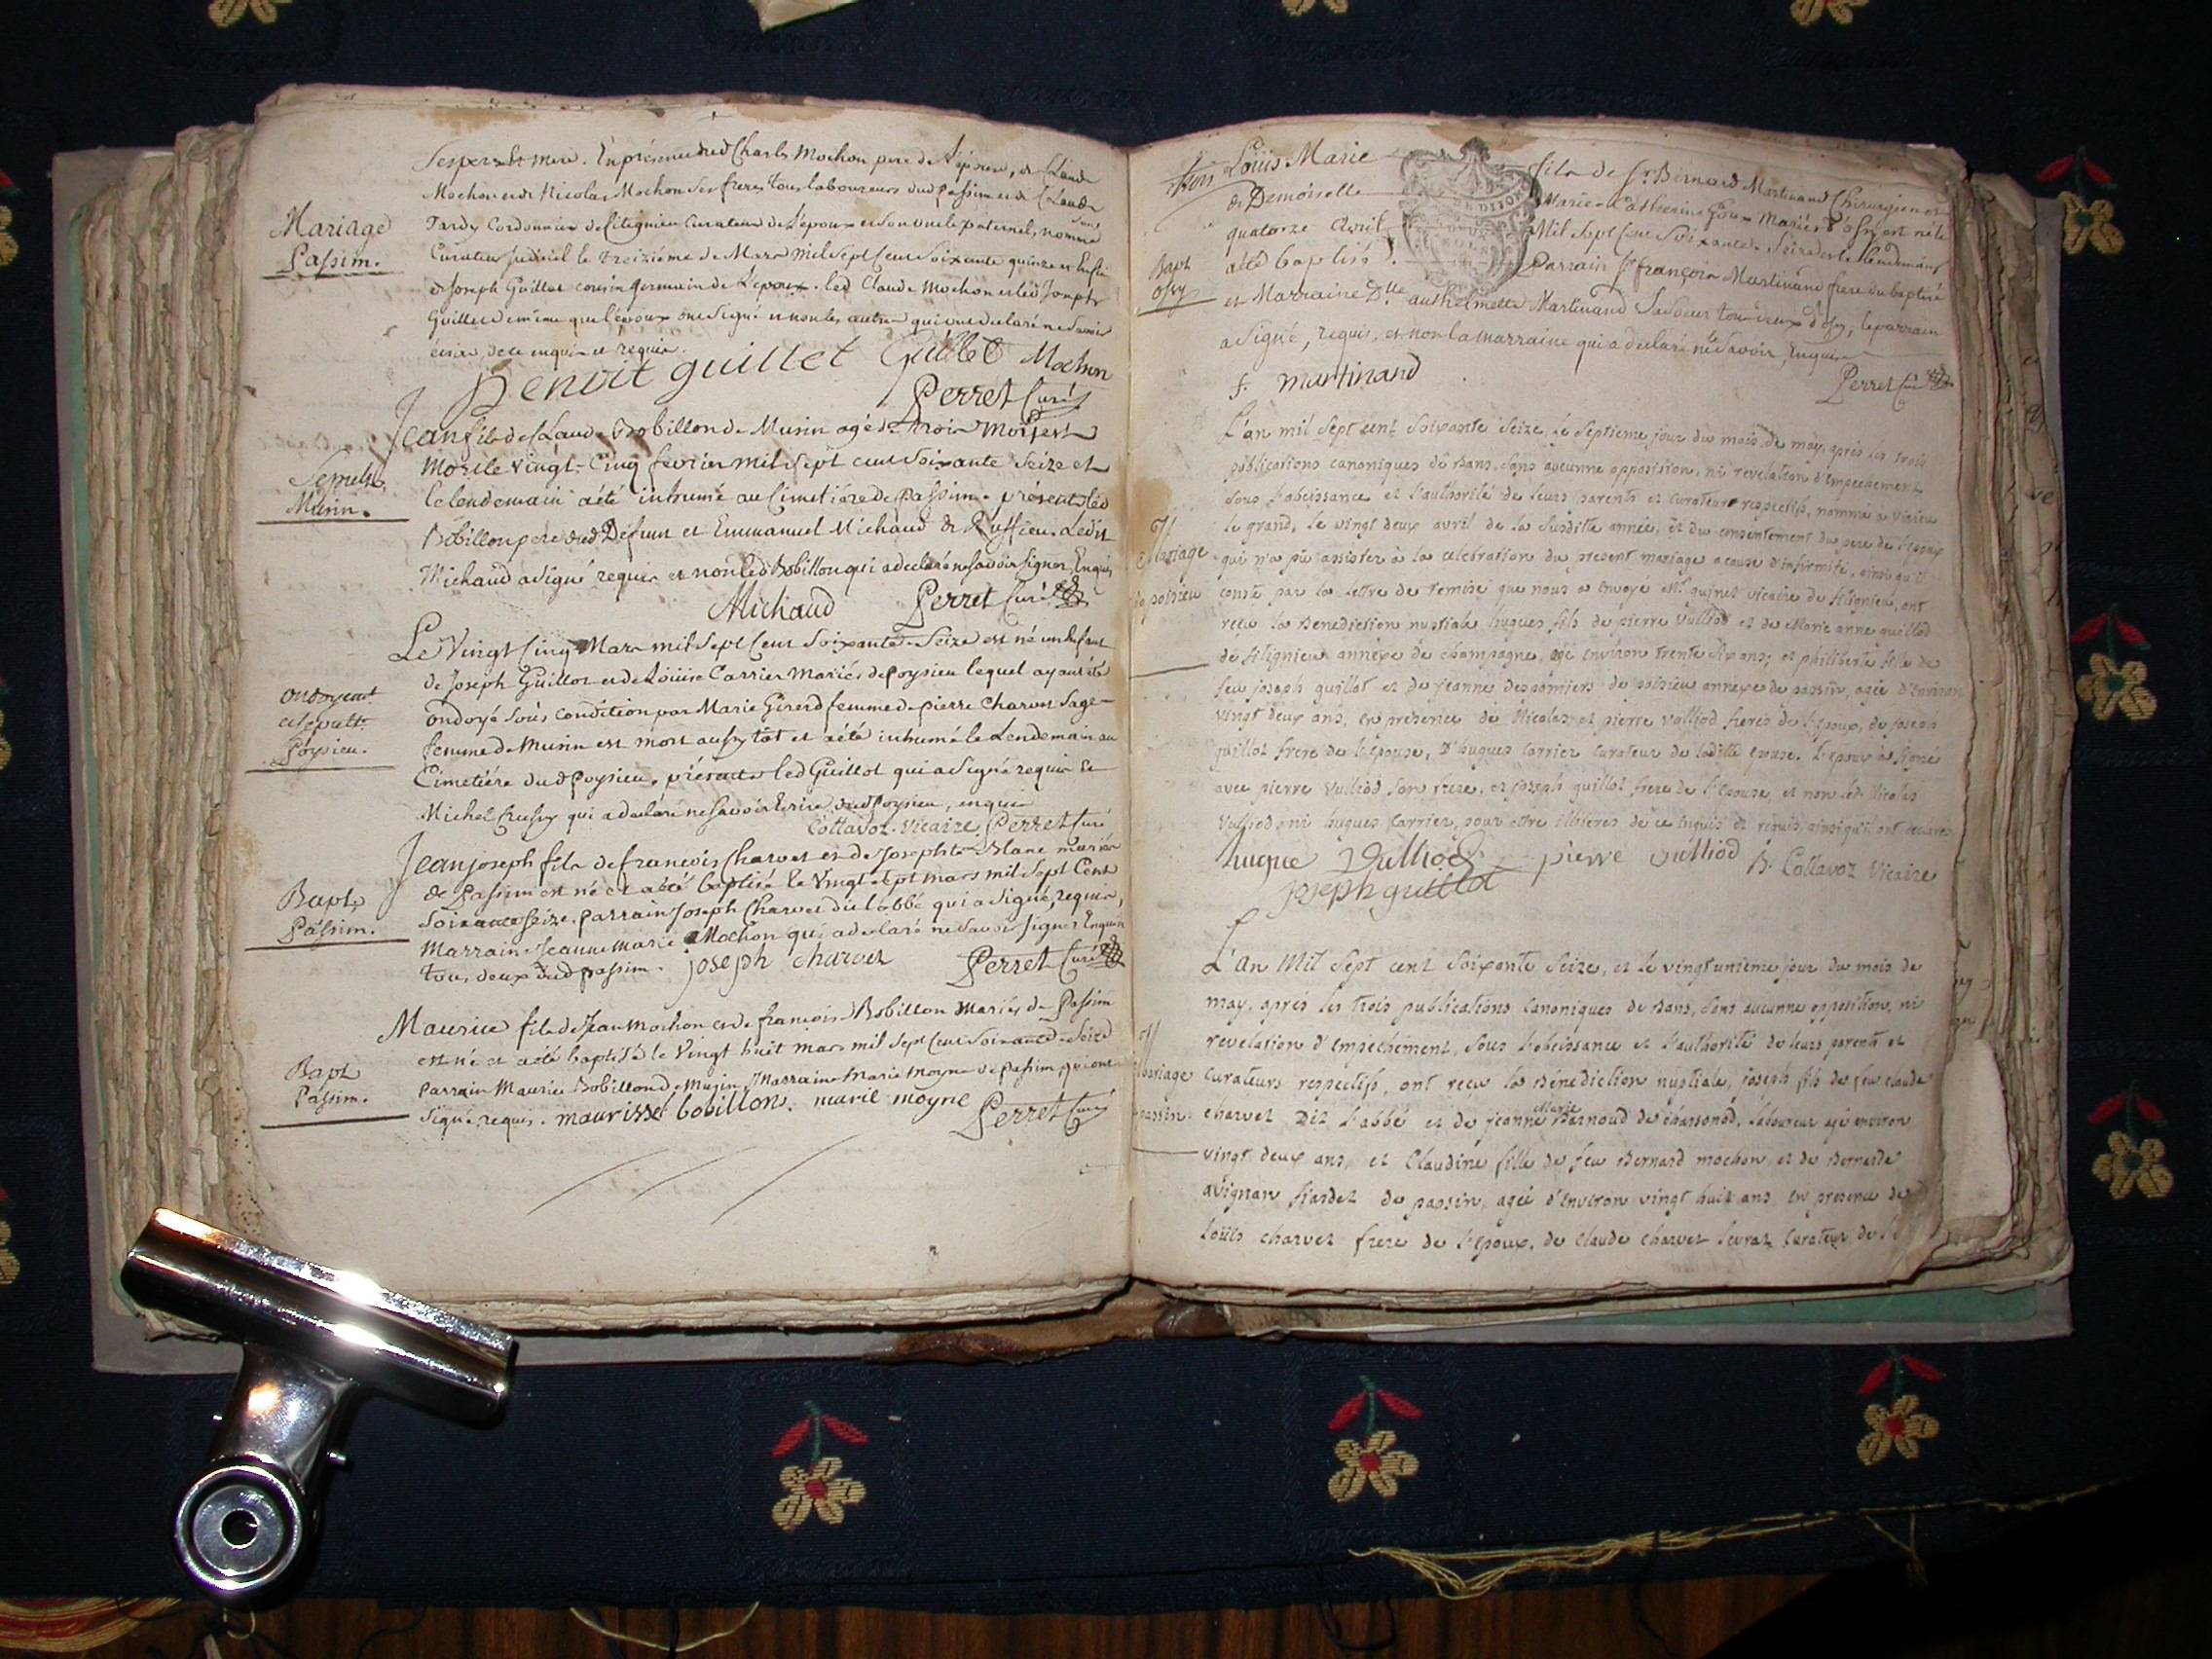 Ses pere et mere. En présence dud Charles Mochon pere de l'épouse, de Claude
Mochon et de Nicolas Mochon ses freres tous laboureurs dud Passin et de Claude
Tardy Cordonnier de Lilignieu Curateur de l'époux et son oncle paternel, nommé
Curateur le treiziéme de Mars mil sept cent soixante quinze et enfin
de Joseph Guillet cousin germain de l'époux. led Claude Mochon et led Joseph
Guillet de même que l'époux ont signé et non les autres qui ont declaré ne savoir
écrire, de ce enquis et requis.
Mariage
Passim.
benoit guillet Guillet Mochon
Perret Curé
Jean fils de Claude Bobillon de Musin agé de trois mois est
mort le vingt-Cinq fevrier mil sept cent soixante seize et
le lendemain a été inhumé au Cimetiére de Passim. présents led
Bobillon pere dud Défunt et Emmanuel Michaud de Ruffieu. Ledit
Michaud a signé requis et non led Bobillon qui a declaré ne savoir signer Enquis
Sepult.
Musin.
Michaud Perret Curé
Le Vingt Cinq Mars mil sept Cent soixante-Seize est né un Enfant
de Joseph Guillot et de Loüise Carrier mariés de Poysieu lequel ayant été
ondoyé sous condition par Marie Girerd femme de pierre Charvet Sage-
femme de Musin est mort aussy tôt et a été inhumé le Lendemain au
Cimetiére dud Poysieu, présents led Guillot qui a signé requis Et
Michel qui a declaré ne savoir Ecrire dud Poysieu, enquis
Ondoyemt
et sepult.
Poysieu.
Cottavoz. Vicaire, Perret Curé
Jean joseph fils de françois Charvet et de Josephte Blanc mariés
de Passim est né et a été baptisé le Vingt sept mars mil sept Cent
soixante seize. parrain Joseph Charvet dit l'abbé qui a signé, requis,
Marraine Jeanne marie Mochon qui a declaré ne savoir signer Enquise
tous deux dud Passim. joseph charvet Perret Curé
Bapt.
Passim.
Maurice fils de Jean Mochon et de françoise Bobillon Mariés de Passim
est né et a été baptisé le Vingt huit mars mil sept Cent soixante-Seize
parrain Maurice Bobillon de Musin, Marraine Marie Moyne de Passim, qui ont
signé, requis. maurisse bobillon. marie moyne Perret Curé
Bapt
Passim.
Loüis Marie fils de Sr Bernard Martinand Chirurgien et
de Demoiselle Marie-Catherine Goux Mariés d'Ossy est né le
quatorze Avril Mil Sept Cent Soixante-Seize et le lendemain
a été baptisé. Parrain Sr françois Martinand frere du baptisé
et Marraine Dlle anthelmette Martinand Sa Soeur tous deux d'Ossy, le parrain
a signé, requis, et non la marraine qui a declaré ne le savoir, Enquise
Bapt
Ossy
f. martinand
Perret Curé
L'an mil sept cent soixante seize, le septieme jour du mois de may, après les trois
publications canoniques de bans, sans aucunne opposition, ni revelation d'empechement
sous l'obeissance et l'authorité de leurs parents et curateurs respectifs, nommé à Virieu
le grand, le vingt deux avril de la susditte année, et du consentement du pere de l'epoux
qui n'a pu assister à la celebration du present mariage a cause d'infirmité, ainsi qu'il
conste par la lettre de remise que nous a envoyé Mr quinet vicaire de lilignieu, ont
reçu la Benediction nuptiale hugues fils de pierre Vulliod et de Marie anne guillod
de lilignieu annexe de champagne, agé environ trente six ans; et philiberte fille de
feu joseph guillot et de jeanne despomiers de poisieu annexe de passin, agée d'environ
vingt deux ans, en presence de Nicolas et pierre Vulliod freres de l'epoux, de joseph
guillot frere de l'epouse, d'hugues Carrier curateur de laditte epouse. l'epoux a signé
avec pierre Vulliod son frere, et joseph guillot frere de l'epouse, et non led Nicolas
Vulliod ni hugues Carrier, pour etre illitérés de ce enquis et requis, ainsi qu'il ont declaré
Mariage
poisieu
hugue Vulliod pierre vulliod B. Cottavoz Vicaire
joseph guillot
L'an Mil sept cent soixante seize, et le vingt unieme jour du mois de
may, après les trois publications canoniques de bans, sans aucunne opposition, ni
revelation d'empechement, sous l'obeissance et l'authorité de leurs parents et
curateurs respectifs, ont reçu la Bénediction nuptiale, joseph fils de feu claude
charvet dit l'abbé et de jeanne Marie Barnoud de chassonod, laboureur agé environ
vingt deux ans, et Claudine fille de feu Bernard mochon, et de Bernarde
avignan de passin, agée d'environ vingt huit ans en presence de
Loüis charvet frere de l'epoux, de claude charvet curateur de
Mariage
passin